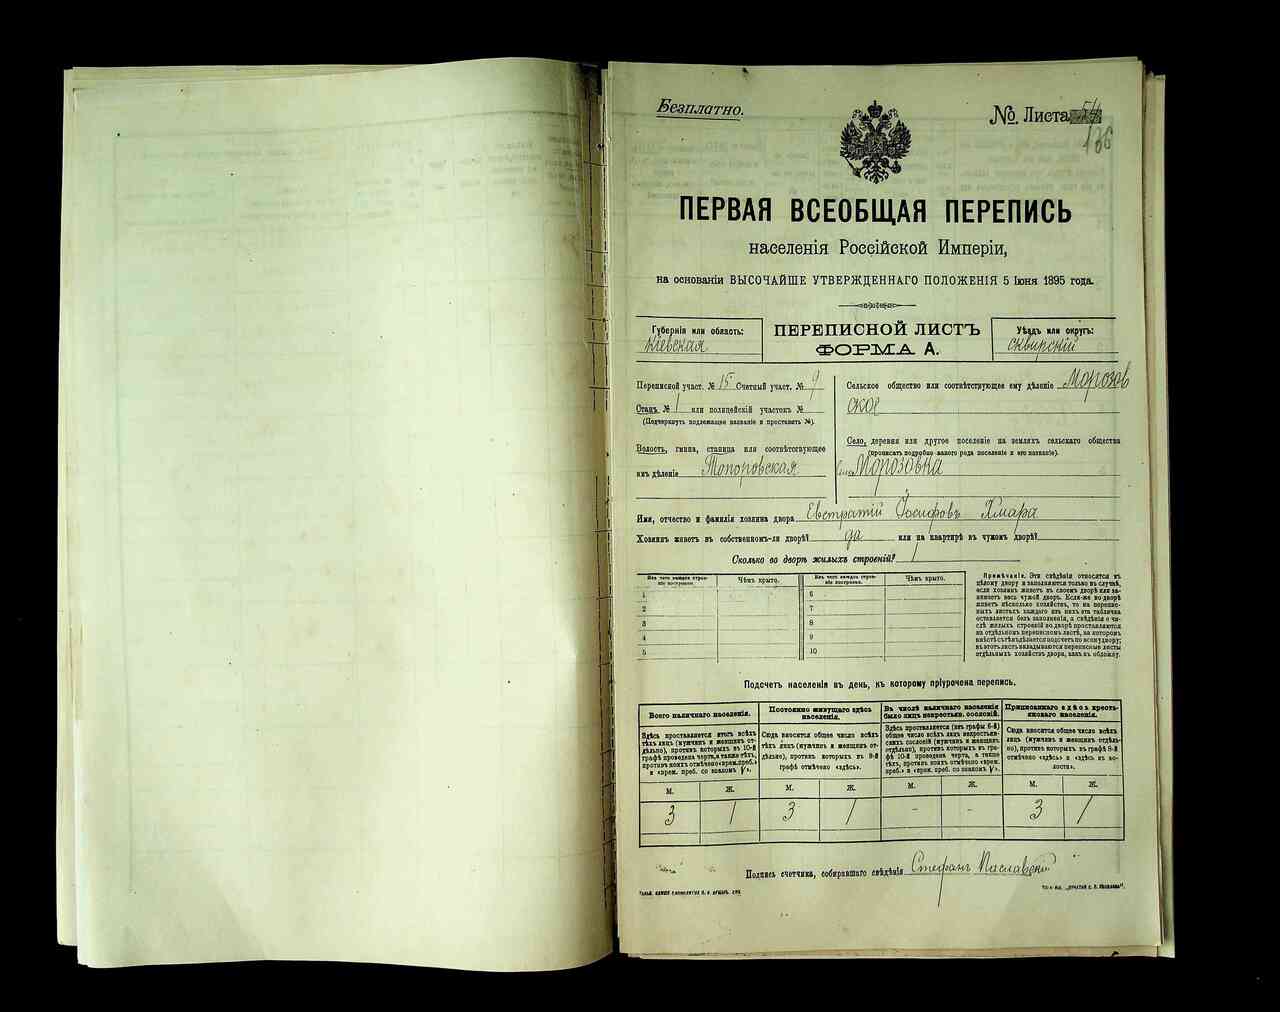 Безплатно.
№ Листа 54
136
ПЕРВАЯ ВСЕОБЩАЯ ПЕРЕПИСЬ
населенія Россійской Имперіи,
на основаніи ВЫСОЧАЙШЕ УТВЕРЖДЕННАГО ПОЛОЖЕНІЯ 5 Іюня 1895 года.
Губернія или область:
Кіевская
ПЕРЕПИСНОЙ ЛИСТЪ
ФОРМА А.
Уѣздъ или округъ:
Сквирскій
Переписной участ. № 15 Счетный участ. № 9
Станъ № 1 или полицейскій участокъ №
(Подчеркнуть подлежащее названіе и проставить №).
Волость, гмина, станица или соотвѣтствующее
имъ дѣленіе Топоровская
Сельское общество или соотвѣтствующее ему дѣленіе Морозов
ское
Село, деревня или другое поселеніе на земляхъ сельскаго общества
(прописать подробно какого рода поселеніе и его названіе).
Морозовка
Имя, отчество и фамилія хозяина двора Евстратій Іосифовъ Хмара
Хозяинъ живетъ въ собственномъ-ли дворѣ? да или на квартирѣ въ чужомъ дворѣ?
Сколько во дворѣ жилыхъ строеній? 1
Изъ чего каждое строеніе построено.
Чѣмъ крыто.
Изъ чего каждое строеніе построено.
Чѣмъ крыто.
1
6
2
7
3
8
4
9
5
10
Примѣчаніе. Эти свѣдѣнія относятся къ
цѣлому двору и заполняются только въ случаѣ,
если хозяинъ живетъ въ своемъ дворѣ или занимаетъ
весь чужой дворъ. Если-же во дворѣ
живетъ нѣсколько хозяйствъ, то на переписныхъ
листахъ каждаго изъ нихъ эта табличка
оставляется безъ заполненія, а свѣдѣнія о числѣ
жилыхъ строеній во дворѣ проставляются
на отдѣльномъ переписномъ листѣ, на которомъ
вмѣстѣ съ тѣмъ дѣлается подсчетъ по всему двору;
въ этотъ листъ вкладываются переписные листы
отдѣльныхъ хозяйствъ двора, какъ въ обложку.
Подсчетъ населенія въ день, къ которому пріурочена перепись.
Всего наличнаго населенія.
Постоянно живущаго здѣсь населенія.
Въ числѣ наличнаго населенія было лицъ некрестьян. сословій.
Приписаннаго здѣсь крестьянскаго населенія.
Здѣсь проставляется итогъ всѣхъ
тѣхъ лицъ (мужчинъ и женщинъ отдѣльно),
противъ которыхъ въ 10-й
графѣ проведена черта, а также тѣхъ,
противъ коихъ отмѣчено «врем. преб.»
и «врем. преб. со знакомъ V».
Сюда вносится общее число всѣхъ
тѣхъ лицъ (мужчинъ и женщинъ отдѣльно),
противъ которыхъ въ 9-й
графѣ отмѣчено «здѣсь».
Здѣсь проставляется (изъ графы 6-й)
общее число всѣхъ лицъ некрестьянскихъ
сословій (мужчинъ и женщинъ
отдѣльно), противъ которыхъ въ графѣ
10-й проведена черта, а также
тѣхъ, противъ коихъ отмѣчено «врем.
преб.» и «врем. преб. со знакомъ V».
Сюда вносится общее число всѣхъ
лицъ (мужчинъ и женщинъ отдѣльно),
противъ которыхъ въ графѣ 8-й
отмѣчено «здѣсь» и «здѣсь въ волости».
М. Ж. М. Ж. М. Ж. М. Ж.
3 1 3 1 - - 3 1
Подпись счетчика, собиравшаго свѣдѣнія Стефанъ Паславскій